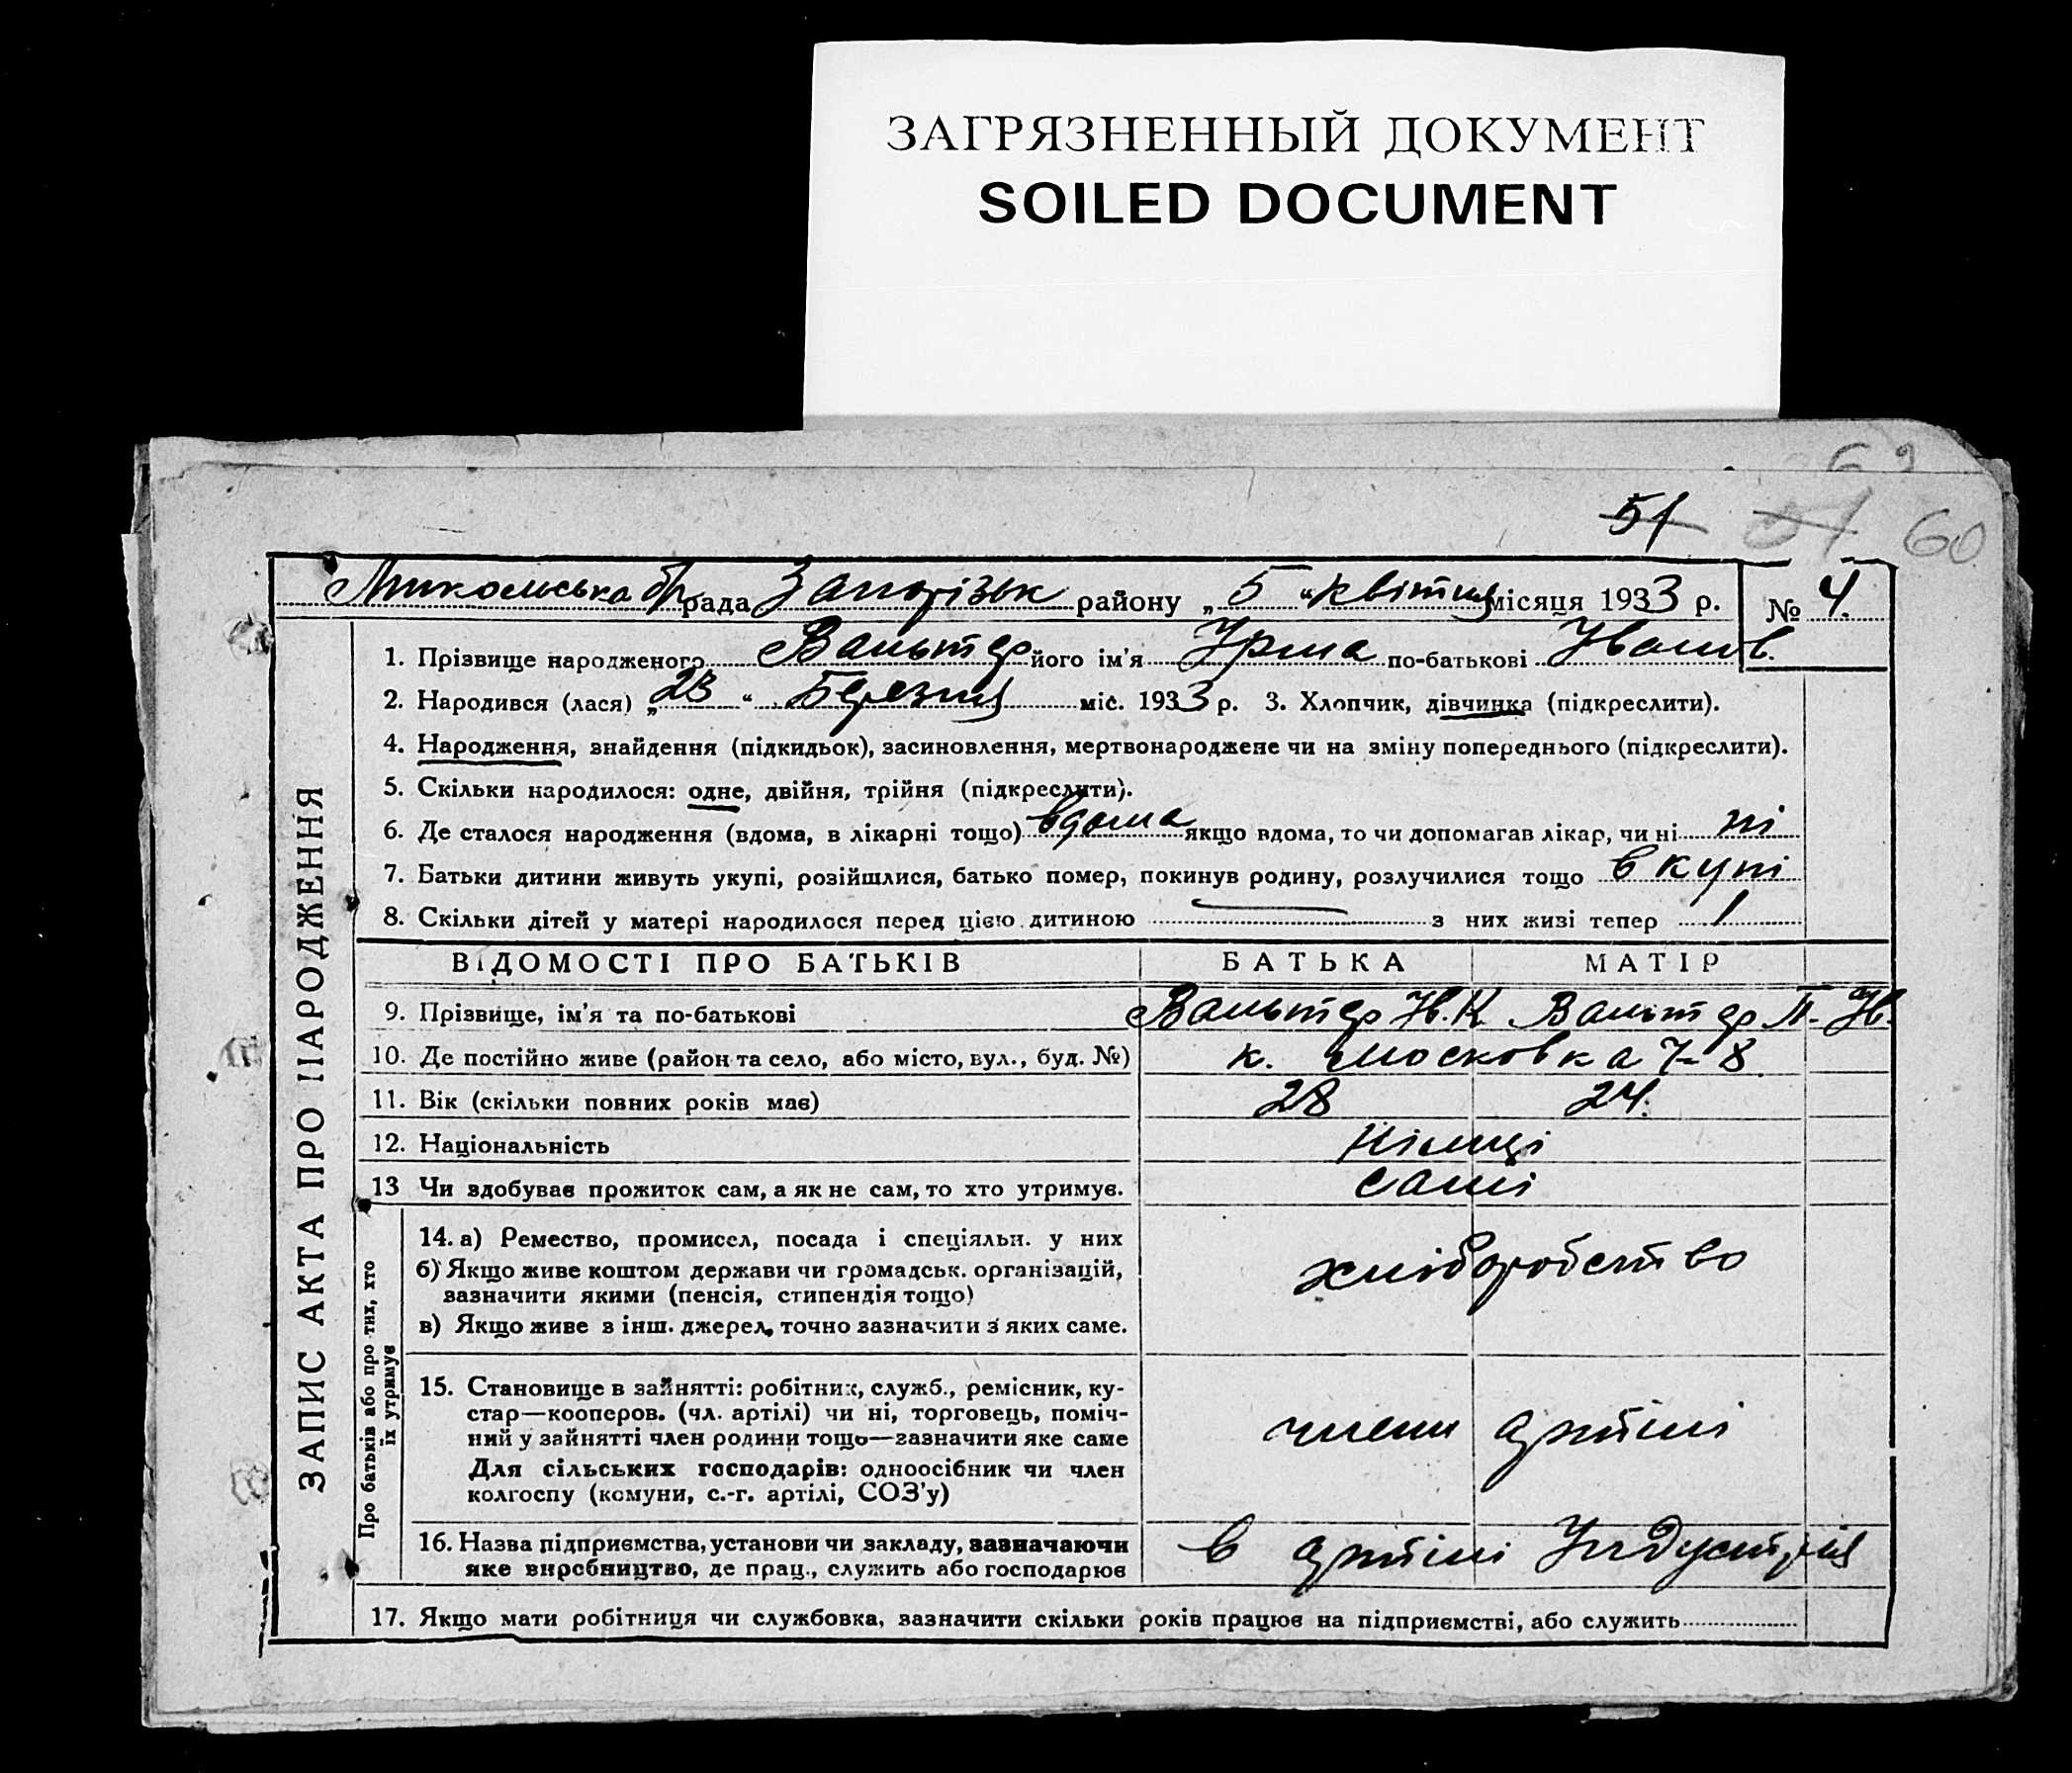 ЗАГРЯЗНЕННЫЙ ДОКУМЕНТ
SOILED DOCUMENT
51 60
рада Запорізьк району „5“ квітня місяця 1933 р. № 4.
ЗАПИС АКТА ПРО НАРОДЖЕННЯ
1. Прізвище народженого Вальтер його ім'я Ірма по-батькові Иванов.
2. Народився (лася) „23“ Березня міс. 1933 р. 3. Хлопчик, дівчинка (підкреслити).
4. Народження, знайдення (підкидьок), засиновлення, мертвонароджене чи на зміну попереднього (підкреслити).
5. Скільки народилося: одне, двійня, трійня (підкреслити).
6. Де сталося народження (вдома, в лікарні тощо) вдома якщо вдома, то чи допомагав лікар, чи ні ні
7. Батьки дитини живуть укупі, розійшлися, батько помер, покинув родину, розлучилися тощо вкупі
8. Скільки дітей у матері народилося перед цією дитиною — з них живі тепер 1
ВІДОМОСТІ ПРО БАТЬКІВ БАТЬКА МАТІР
9. Прізвище, ім'я та по-батькові Вальтер Ив. К Вальтер П. Ив.
10. Де постійно живе (район та село, або місто, вул., буд. №) к. Московка 7-8
11. Вік (скільки повних років має) 28 24.
12. Національність Німці
13 Чи здобуває прожиток сам, а як не сам, то хто утримує. Самі
Про батьків або про тих, хто
їх утримує
14. а) Ремество, промисел, посада і спеціяльн. у них
б) Якщо живе коштом держави чи громадськ. організацій,
зазначити якими (пенсія, стипендія тощо)
в) Якщо живе з інш. джерел, точно зазначити з яких саме.
хліборобство
15. Становище в зайнятті: робітник, служб., ремісник, ку-
стар—кооперов. (чл. артілі) чи ні, торговець, поміч-
ний у зайнятті член родини тощо—зазначити яке саме
Для сільських господарів: одноосібник чи член
колгоспу (комуни, с.-г. артілі, СОЗ'у)
члени артілі
16. Назва підприємства, установи чи закладу, зазначаючи
яке виробництво, де прац., служить або господарює
в артілі Індустрія
17. Якщо мати робітниця чи службовка, зазначити скільки років працює на підприємстві, або служить